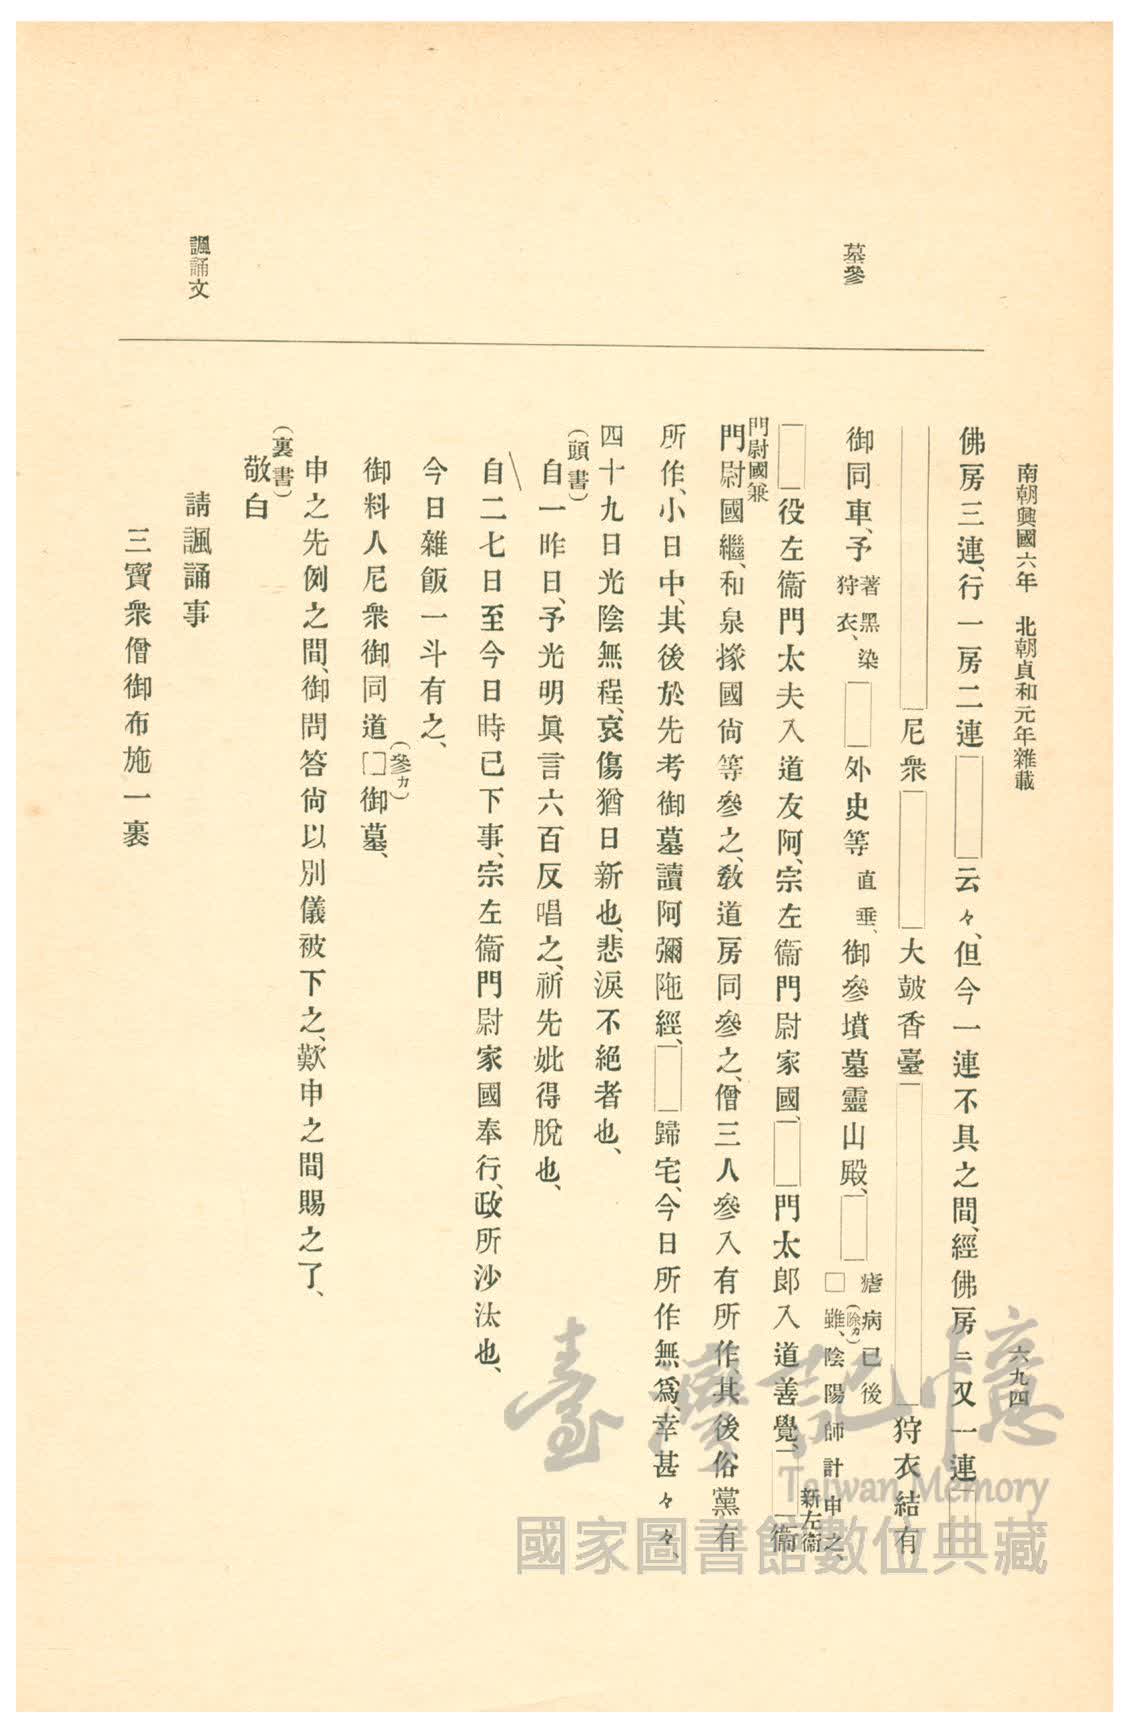 南朝興國六年　北朝貞和元年雜載
六九四
墓參
諷誦文
佛房三連、行一房二連□云々、但今一連不具之間、經佛房ニ又一連□
□尼衆□大鼓香臺□狩衣結有
御同車、予著黑染狩衣、□外史等直垂、御參墳墓靈山殿、□瘧病已後□(除カ)雖、陰陽師計申之、
□役左衞門太夫入道友阿、宗左衞門尉家國、□門太郎入道善覺、□新左衞衞
門尉國兼門尉國繼、和泉掾國尙等參之、敎道房同參之、僧三人參入有所作、其後俗黨有
所作、小日中、其後於先考御墓讀阿彌陁經、□歸宅、今日所作無爲、幸甚々々、
四十九日光陰無程、哀傷猶日新也、悲淚不絕者也、
(頭書)
自一昨日、予光明眞言六百反唱之、祈先妣得脫也、
自二七日至今日時已下事、宗左衞門尉家國奉行、政所沙汰也、
今日雜飯一斗有之、
御料人尼衆御同道□(參カ)御墓、
申之先例之間、御問答尙以別儀被下之、歎申之間賜之了、
(裏書)
敬白
請諷誦事
三寶衆僧御布施一裹
臺灣記憶
Taiwan Memory
國家圖書館數位典藏